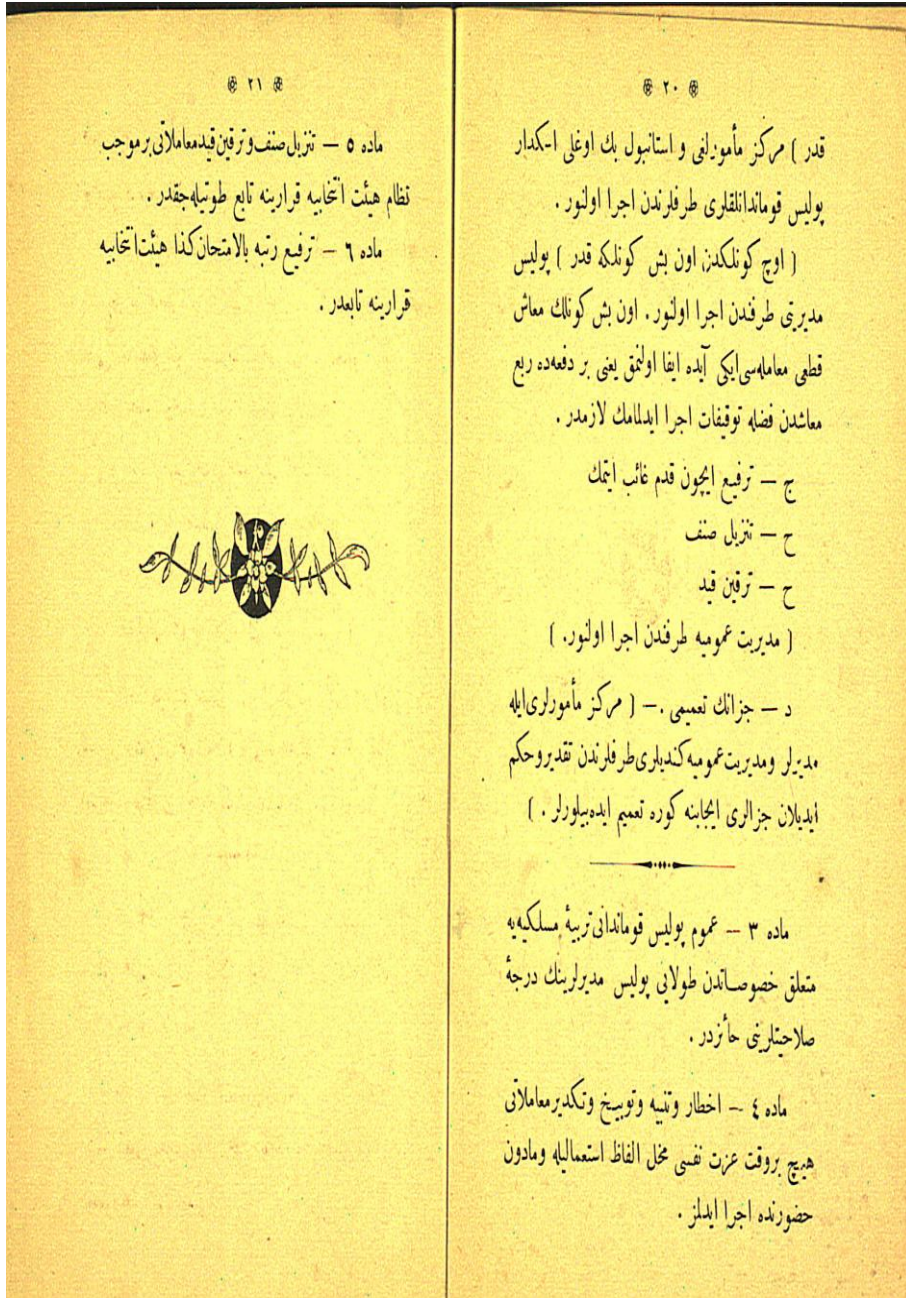 ٢٠
قدر ) مركز مأمورلغی و استانبول بك اوغلی اسكدار
پولیس قوماندانلقلری طرفلرندن اجرا اولنور .
( اوچ كونلكدن اون بش كونلكه قدر ) پولیس
مدیریتی طرفندن اجرا اولنور . اون بش كونلك معاش
قطعی معامله‌سی ایكی آیده ایفا اولنمق یعنی بر دفعه‌ده ربع
معاشدن فضله توقیفات اجرا ایدلمامك لازمدر .
ج — ترفیع ایچون قدم غائب ایتمك
ح — تنزیل صنف
ح — ترقین قید
( مدیریت عمومیه طرفندن اجرا اولنور . )
د — جزانك تعمیمی . — ( مركز مأمورلری ایله
مدیرلر ومدیریت عمومیه كندیلری طرفلرندن تقدیر وحكم
ایدیلان جزالری ایجابنه كوره تعمیم ایده‌بیلورلر . )
ماده ٣ — عموم پولیس قوماندانی تربیۀ مسلكیه‌یه
متعلق خصوصاتدن طولایی پولیس مدیرلرینك درجۀ
صلاحیتلرینی حائزدر .
ماده ٤ — اخطار وتنبیه وتوبیخ وتكدیر معاملاتی
هیچ بروقت عزت نفسی مخل الفاظ استعمالیله ومادون
حضورنده اجرا ایدلمز .
٢١
ماده ٥ — تنزیل صنف و ترقین قید معاملاتی بر موجب
نظام هیئت انتخابیه قرارینه تابع طوتیله‌جقدر .
ماده ٦ — ترفیع رتبه بالامتحان كذا هیئت انتخابیه
قرارینه تابعدر .